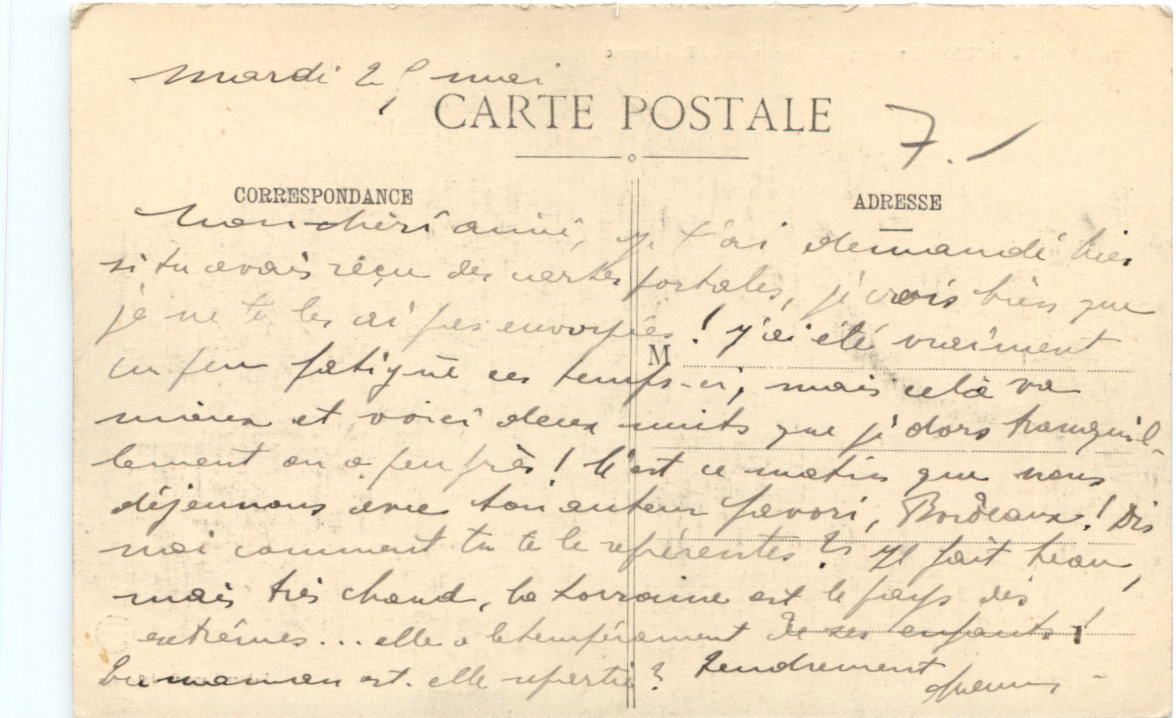 mardi 25 mai
CARTE POSTALE
7.
CORRESPONDANCE
ADRESSE
Mon chéri aimé, je t'ai demandé hier
si tu avais reçu des cartes postales, je crois bien que
je ne te les ai pas envoyées ! j'ai été vraiment
M
un peu fatigué ces temps-ci, mais cela va
mieux et voici deux nuits que je dors tranquil-
lement ou à peu près ! C'est ce matin que nous
déjeunons avec ton auteur favori, Bordeaux ! Dis
moi comment tu te le représentes ? Il fait beau,
mais très chaud, la Lorraine est le pays des
extrêmes... elle a le tempérament de ses enfants !
Ta maman est-elle repartie ? Tendrement